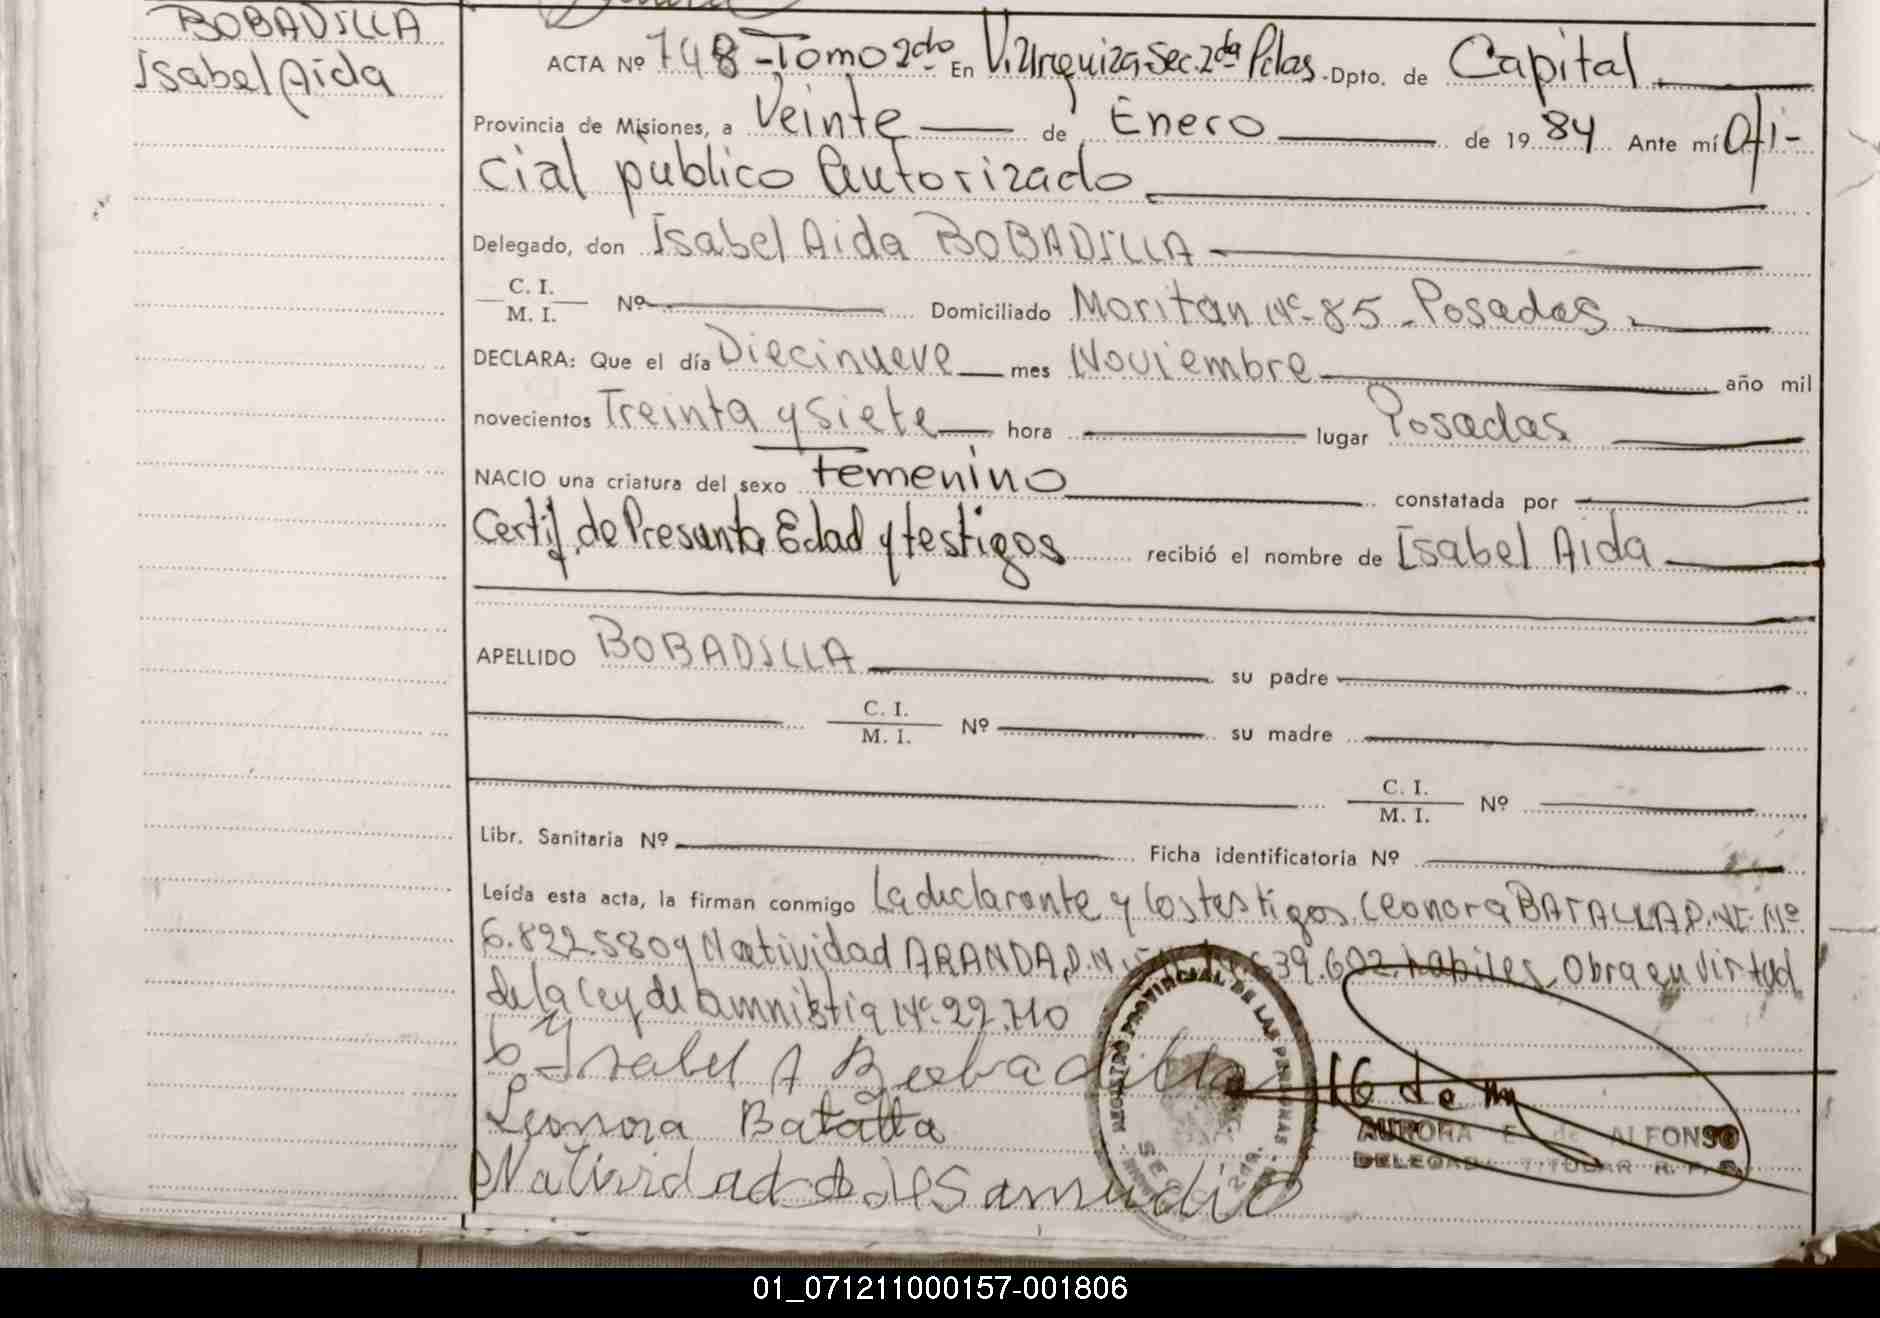 BOBADILLA
Isabel Aida
ACTA Nº 748 - Tomo 2do En V. Urquiza Sec. 2da Pdas. Dpto. de Capital
Provincia de Misiones, a Veinte de Enero de 1984 Ante mí Ofi-
cial público Autorizado
Delegado, don Isabel Aida BOBADILLA
C. I.
M. I. Nº Domiciliado Moritan Nº 85 - Posadas
DECLARA: Que el día Diecinueve mes Noviembre año mil
novecientos Treinta y Siete hora lugar Posadas
NACIO una criatura del sexo femenino constatada por
Certif. de Presunta Edad y testigos recibió el nombre de Isabel Aida
APELLIDO BOBADILLA su padre
C. I.
M. I. Nº su madre
C. I.
M. I. Nº
Libr. Sanitaria Nº Ficha identificatoria Nº
Leída esta acta, la firman conmigo La declarante y los testigos Leonora BATALLA D.N.I. Nº
6.822.580 y Natividad ARANDA, D.N.I. 639.602. habiles. Obra en virtud
de la Ley de amnistia Nº 22.710
Isabel A Bobadilla
Leonora Batalla
Natividad de Samudio
REGISTRO PROVINCIAL DE LAS PERSONAS
SECC. 2da.
16 de
AURORA E. de ALFONSO
DELEGADA TITULAR R. P. P.
01_071211000157-001806